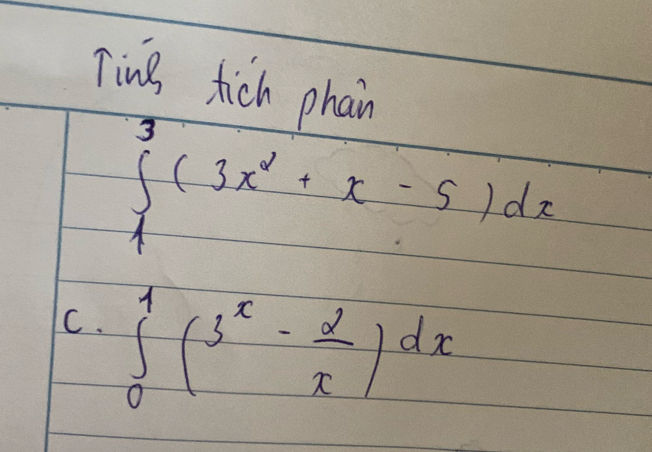 Tính tích phân
∫₁³ (3x² + x - 5) dx
c. ∫₀¹ (3ˣ - 2/x) dx